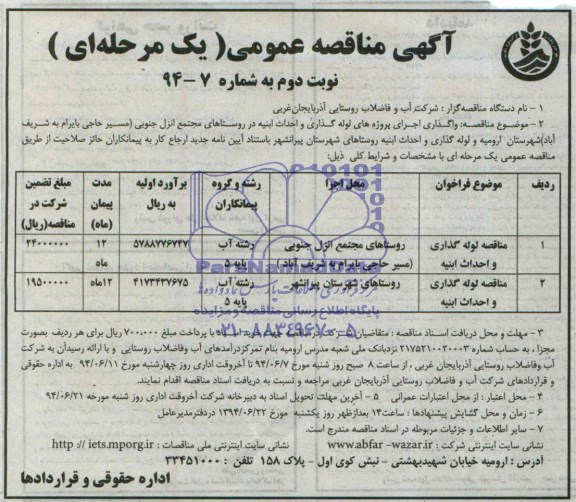 آگهی مناقصه عمومی( یک مرحله‌ای )
نوبت دوم به شماره ۷-۹۴
۱ - نام دستگاه مناقصه‌گزار : شرکت آب و فاضلاب روستایی آذربایجان‌غربی
۲ - موضوع مناقصه: واگذاری اجرای پروژه های لوله گذاری و احداث ابنیه در روستاهای مجتمع انزل جنوبی (مسیر حاجی بایرام به شریف
آباد)شهرستان ارومیه و لوله گذاری و احداث ابنیه روستاهای شهرستان پیرانشهر باستناد آیین نامه جدید ارجاع کار به پیمانکاران حائز صلاحیت از طریق
مناقصه عمومی یک مرحله ای با مشخصات و شرایط کلی ذیل:
ردیف موضوع فراخوان محل اجرا رشته و گروه پیمانکاران برآورد اولیه به ریال مدت پیمان (ماه) مبلغ تضمین شرکت در مناقصه(ریال)
۱ مناقصه لوله گذاری و احداث ابنیه روستاهای مجتمع انزل جنوبی (مسیر حاجی بایرام به شریف آباد) رشته آب پایه ۵ ۵۷۸۸۷۷۶۷۴۷ ۱۲ ماه ۲۴۰۰۰۰۰۰
۲ مناقصه لوله گذاری و احداث ابنیه روستاهای شهرستان پیرانشهر رشته آب پایه ۵ ۴۱۷۳۴۳۷۶۷۵ ۱۲ماه ۱۹۵۰۰۰۰۰
پایگاه اطلاع رسانی مناقصه و مزایده
۰۲۱-۸۸۳۴۹۶۷۰-۵
ParsNamadData
۳ - مهلت و محل دریافت اسناد مناقصه : متقاضیان شرکت در مناقصه جهت خرید اسناد با پرداخت مبلغ ۷۰۰،۰۰۰ ریال برای هر ردیف بصورت
مجزا ، به حساب شماره ۲۱۷۵۲۱۰۰۲۰۰۰۳ نزدبانک ملی شعبه مدرس ارومیه بنام تمرکزدرآمدهای آب وفاضلاب روستایی و با ارائه رسیدآن به شرکت
آب وفاضلاب روستایی آذربایجان غربی ، از ساعت ۸ صبح روز شنبه مورخ ۹۴/۰۶/۷ تا آخروقت اداری روز چهارشنبه مورخ ۹۴/۰۶/۱۱ به اداره حقوقی
و قراردادهای شرکت آب و فاضلاب روستایی آذربایجان غربی مراجعه و نسبت به دریافت اسناد مناقصه اقدام نمایند.
۴ - محل اعتبار : از محل اعتبارات عمرانی ۵ - آخرین مهلت تحویل اسناد به دبیرخانه شرکت آخروقت اداری روز شنبه مورخه ۹۴/۰۶/۲۱
۶ - زمان و محل گشایش پیشنهادها : ساعت۱۴ بعدازظهر روز یکشنبه مورخ ۱۳۹۴/۰۶/۲۲ دردفترمدیرعامل
۷ - سایر اطلاعات و جزئیات مربوطه در اسناد مناقصه مندرج است.
نشانی سایت اینترنتی شرکت : www.abfar-wazar.ir نشانی سایت اینترنتی ملی مناقصات : http :// iets.mporg.ir
آدرس : ارومیه خیابان شهیدبهشتی - نبش کوی اول - پلاک ۱۵۸ تلفن : ۳۳۴۵۱۰۰۰
اداره حقوقی و قراردادها